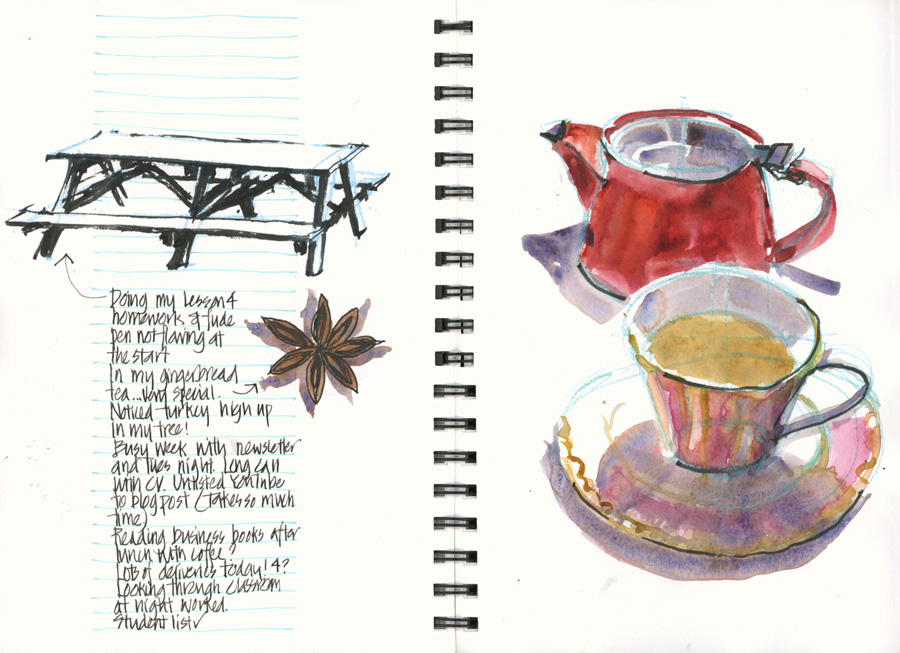 Doing my Lesson 4
homework & fude
pen not flowing at
the start
In my gingerbread
tea...very special.
Noticed turkey high up
in my tree!
Busy week with newsletter
and Tues night. Long call
with CV. Unlisted YouTube
to blog post (Takes so much
time)
Reading business books after
lunch with coffee?
Lots of deliveries today! 4?
Looking through classroom
at night worked.
Student list✓